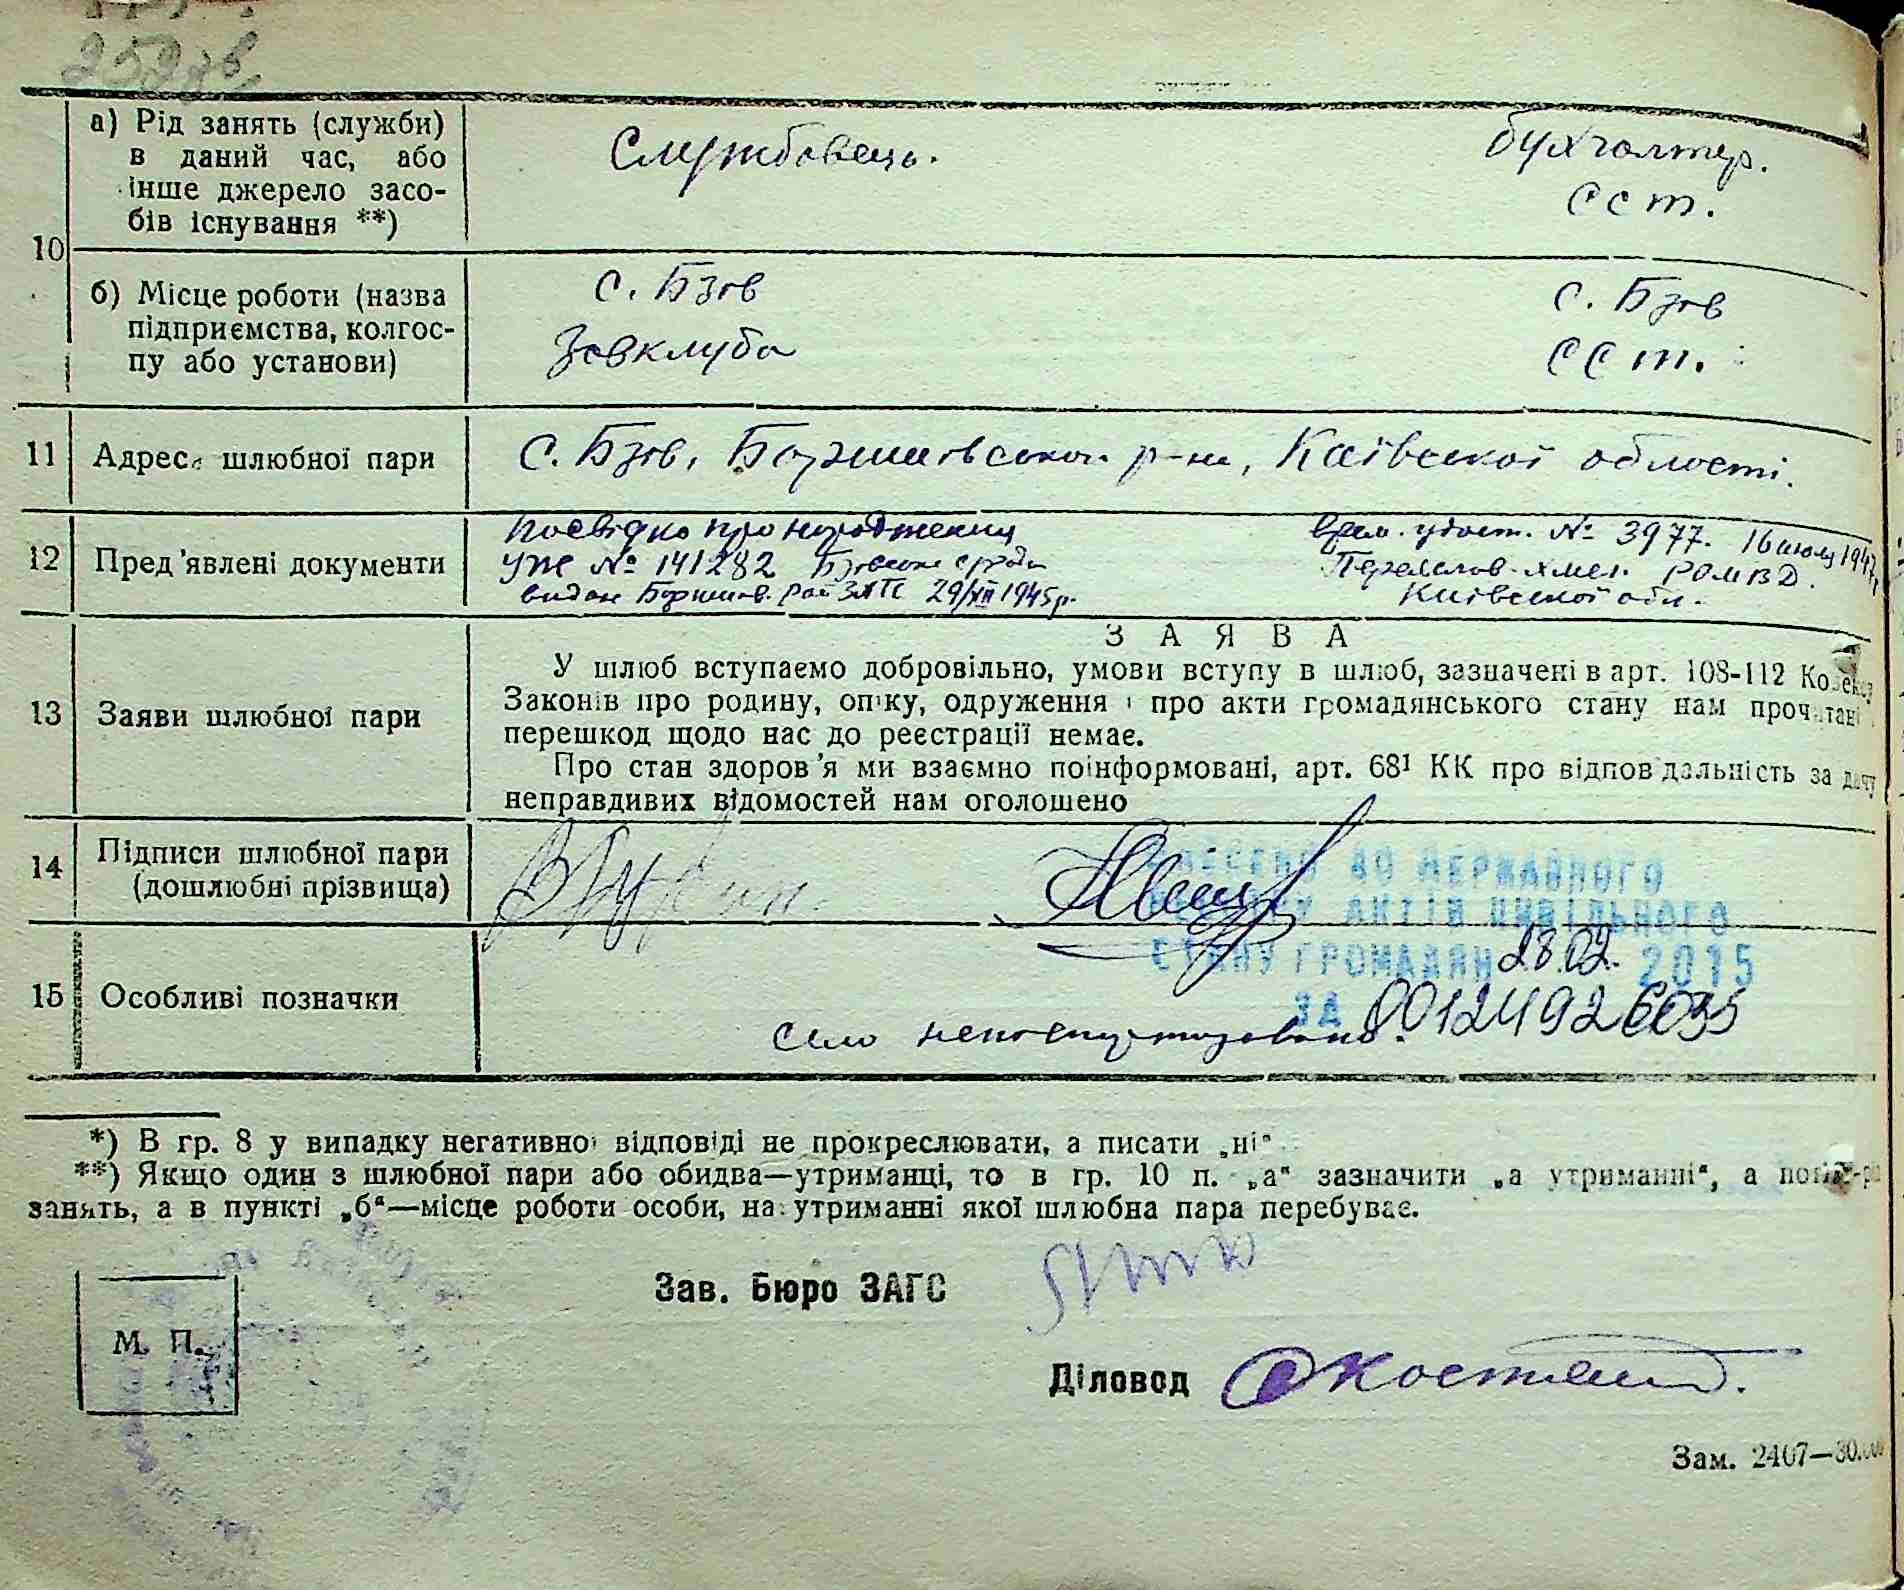 252 зв.
10
а) Рід занять (служби)
в даний час, або
інше джерело засо-
бів існування **)
Службовець.
бухгалтер.
ССТ.
б) Місце роботи (назва
підприємства, колгос-
пу або установи)
с. Бзов
Завклуба
с. Бзов
ССТ.
11 Адреса шлюбної пари
с. Бзов, Боришовського р-на, Київської області.
12 Пред'явлені документи
посвідка про народження
УЖ № 141282 Бзовською с/радою
видан Баришів. рай ЗАГС 29/XII 1945 р.
врем. удост. № 3977. 16 июля 1947
Переяслов-Хмел. РОМВД.
Київської обл.
13 Заяви шлюбної пари
ЗАЯВА
У шлюб вступаємо добровільно, умови вступу в шлюб, зазначені в арт. 108-112 Кодексу
Законів про родину, опіку, одруження і про акти громадянського стану нам прочитані
перешкод щодо нас до реєстрації немає.
Про стан здоров'я ми взаємно поінформовані, арт. 68¹ КК про відповідальність за дачу
неправдивих відомостей нам оголошено
14 Підписи шлюбної пари
(дошлюбні прізвища)
ВНЕСЕНО ДО ДЕРЖАВНОГО
РЕЄСТРУ АКТІВ ЦИВІЛЬНОГО
СТАНУ ГРОМАДЯН 28.02. 2015
ЗА 00124926035
15 Особливі позначки
Село
*) В гр. 8 у випадку негативної відповіді не прокреслювати, а писати „ні“
**) Якщо один з шлюбної пари або обидва—утриманці, то в гр. 10 п. „а“ зазначити „а утриманні“, а
занять, а в пункті „б“—місце роботи особи, на утриманні якої шлюбна пара перебуває.
Зав. Бюро ЗАГС
М. П.
Діловод
Зам. 2407—30.000